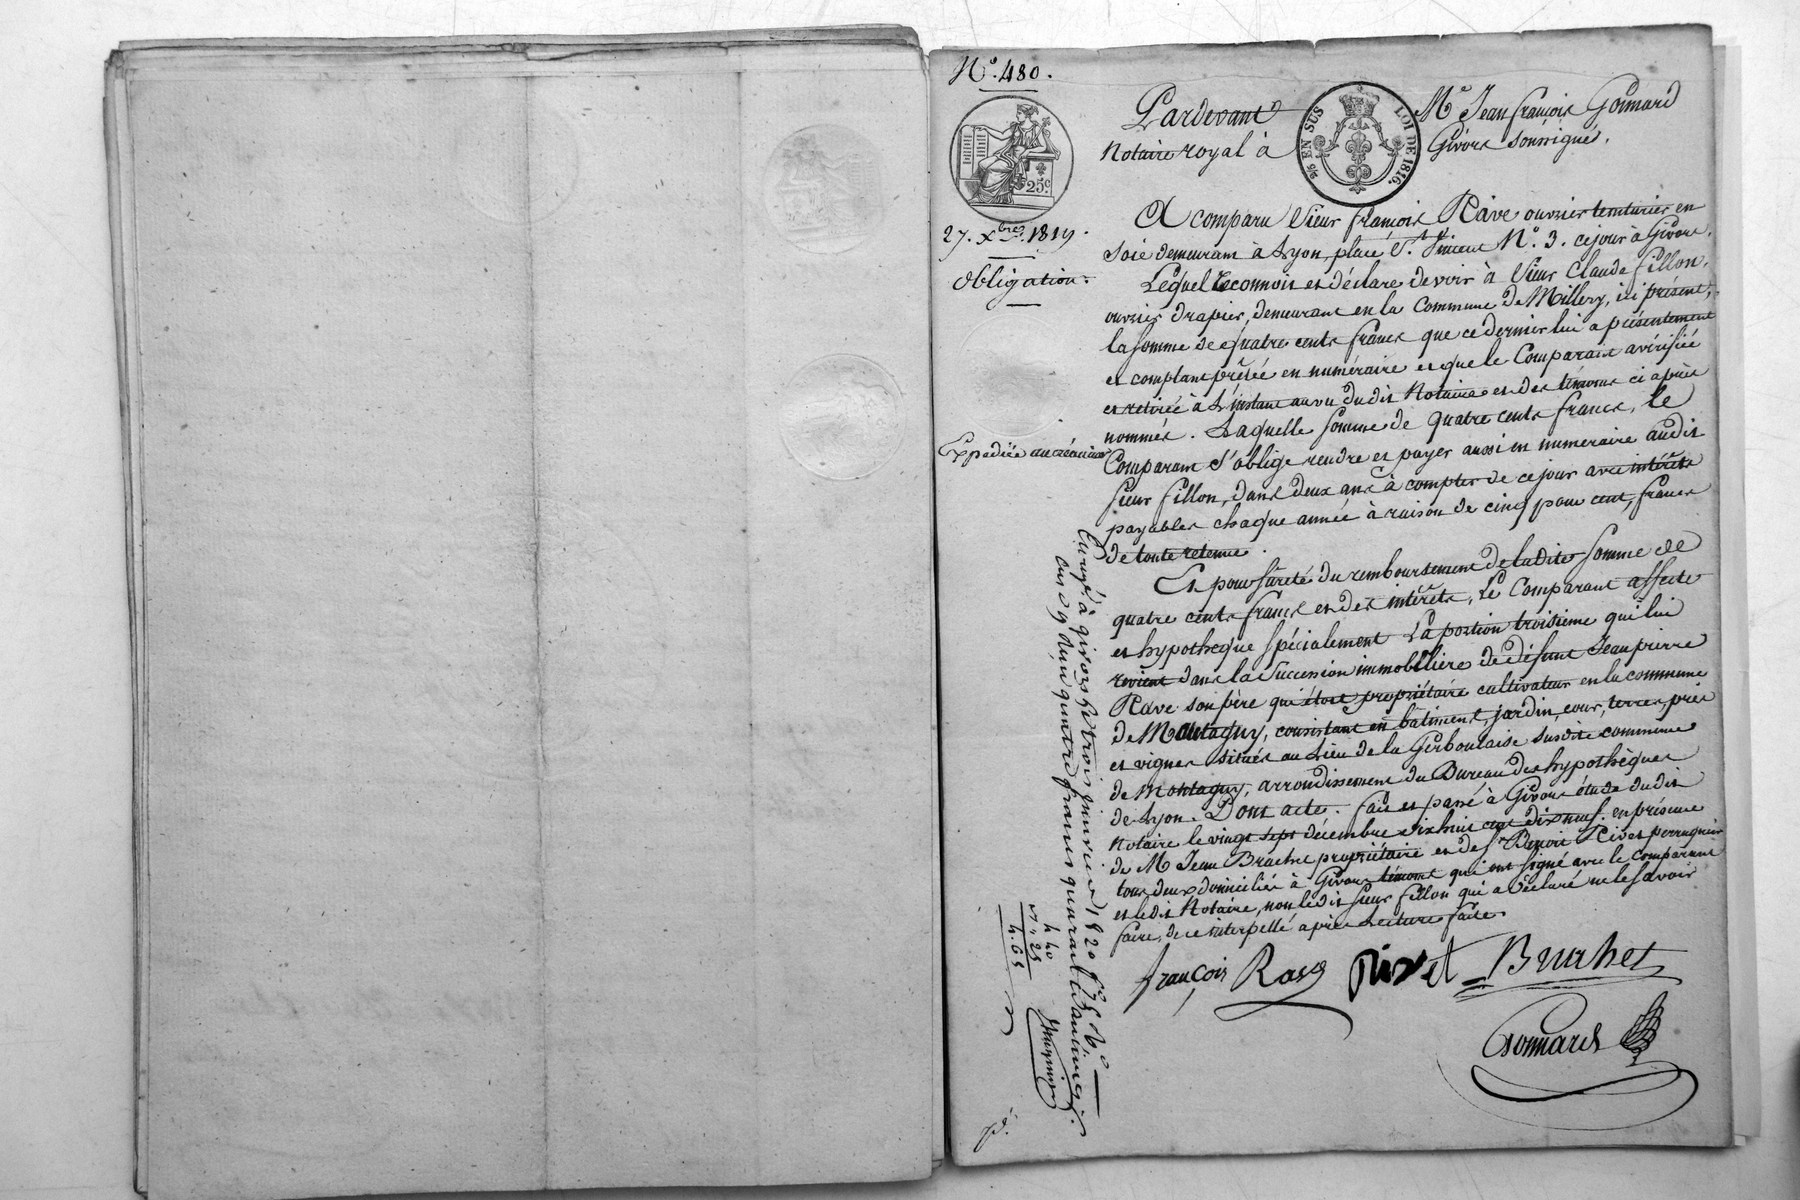 N.° 480.
25.c
27. Xbre. 1819.
Obligation.
Expediée au créancier
Pardevant Me Jean François Goimard
Notaire royal à Givors soussigné.
5/5 EN SUS LOI DE 1816.
A comparu Sieur François Rave ouvrier teinturier en
soie demeurant à Lyon, place St. Vincent N.° 3. ce jour à Givors.
Lequel reconnoit et déclare devoir à Sieur Claude Fillon,
ouvrier drapier, demeurant en la Commune de Millery, ici présent,
la somme de quatre cents francs que ce dernier lui a présentement
et comptant prêtée en numéraire et que le Comparant a vérifiée
et retirée à l'instant au vu dudit Notaire et des témoins ci après
nommés. Laquelle somme de quatre cents francs, le
Comparant s'oblige rendre et payer aussi en numeraire audit
sieur Fillon, dans deux ans à compter de ce jour avec intérêts
payables chaque année à raison de cinq pour cent, francs
de toute retenue.
Et pour sûreté du remboursement de ladite somme de
quatre cents francs et des intérêts, Le Comparant affecte
et hypothèque spécialement La portion troisième qui lui
revient dans la Succession immobilière de défunt Jean pierre
Rave son père qui étoit propriétaire cultivateur en la commune
de Montagny, consistant en bâtiment, jardin, cour, terres, prés
et vignes situés au Lieu de la Gerboulaise susdite commune
de Montagny, arrondissement du Bureau des hypothèques
de Lyon. Dont acte. fait et passé à Givors étude dudit
Notaire le vingt sept décembre dix huit cent dix neuf. en présence
de M Jean Brachet propriétaire et de sr Benoit Rivet perruquier
tous deux domiciliés à Givors témoins qui ont signé avec le comparant
et ledit Notaire, non ledit sieur Fillon qui a déclaré ne le savoir
faire, de ce interpellé après Lecture faite.
françois Rave Rivet Bruchet
Goimard
Enregé à givors le trois janvier 1820 fo 75 Vo. Co
reçu quatre francs quarante centimes.
4 40
4.65